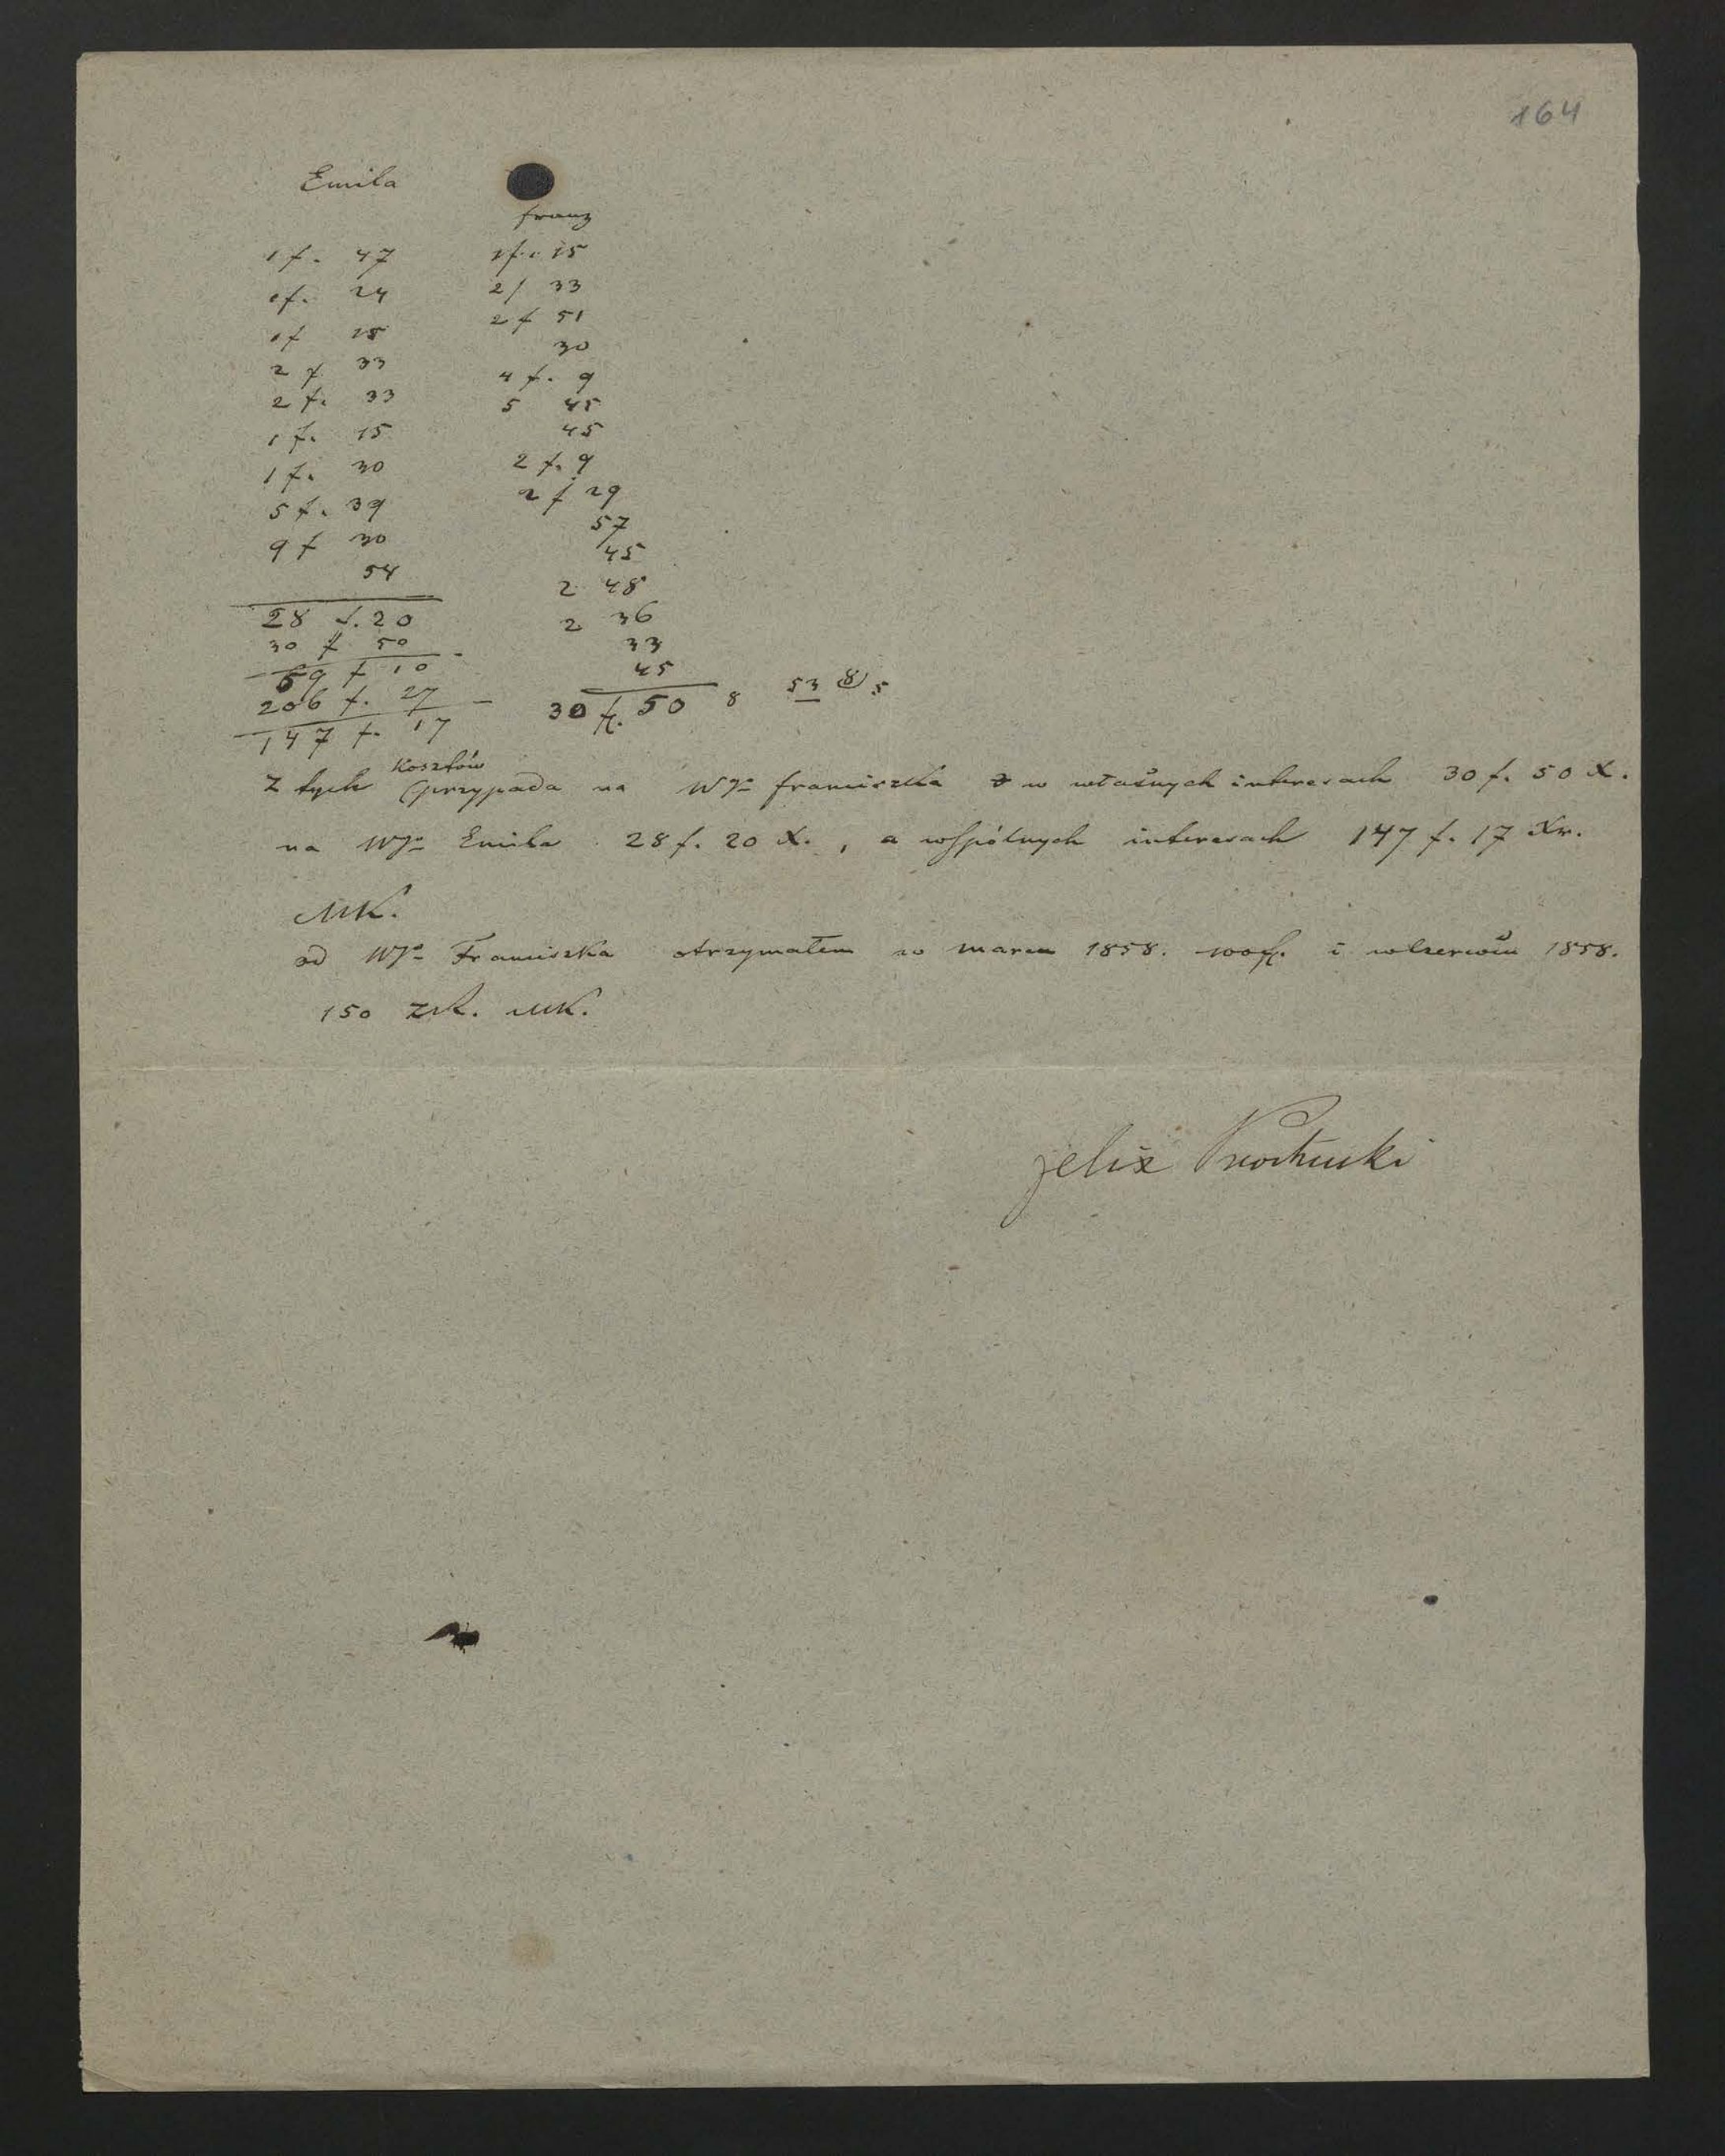 164
Emila
franz
1 f. 47
1 f. 24
1 f 15
2 f 33
2 f. 33
1 f. 15
1 f. 30
5 f. 39
9 f 30
54
28 f. 20
30 f 50
59 f 10
206 f. 27
147 f. 17
1 f. 15
2 f 33
2 f 51
30
4 f. 9
5 45
45
2 f. 9
2 f 29
57
45
2 48
2 36
33
45
30 fl. 50 8 53 8 5
Kosztów
Z tych przypada na WJo franciszka w własnych interesach 30 f. 50 X.
na WJo Emila 28 f. 20 X., a wspólnych interesach 147 f. 17 Xr.
MK.
od WJo Franciszka otrzymałem w marcu 1858. 100 fl. i w Czerwcu 1858.
150 zR. MK.
felix